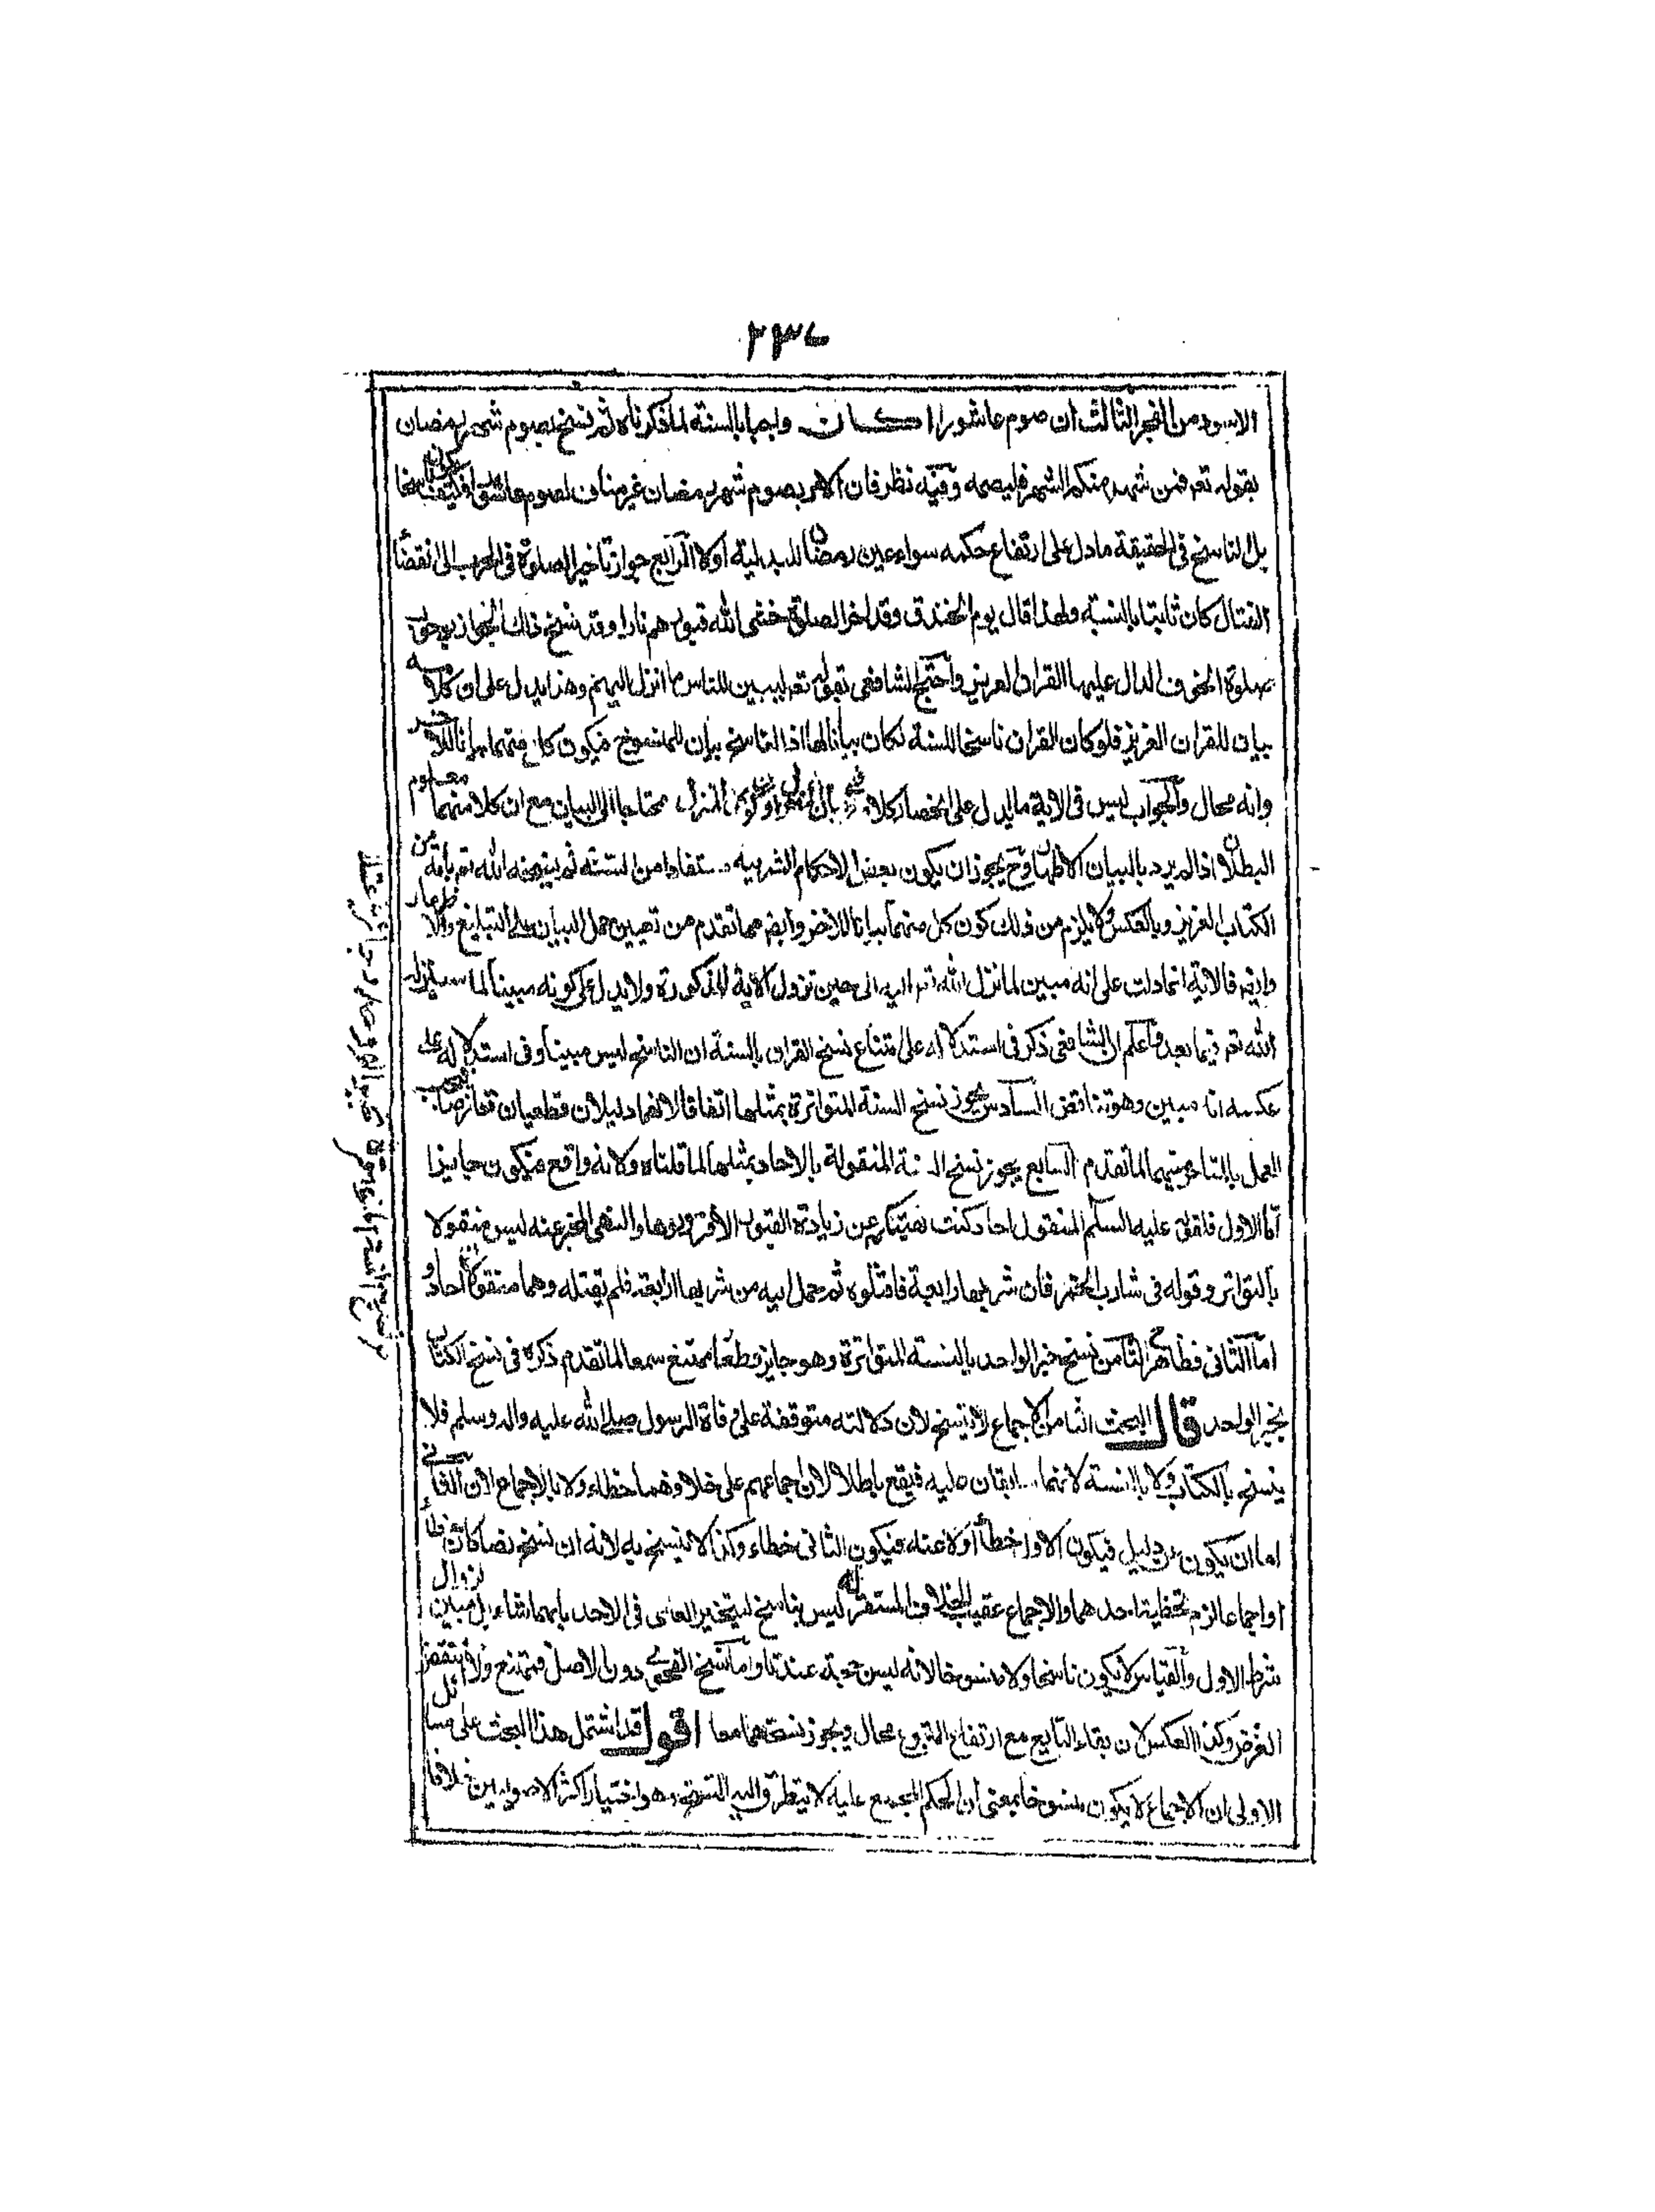 ٢٣٧
الاسود من الفجر الثالث ان صوم عاشورا كان واجبا بالسنة لما ذكرناه ثم نسخ بصوم شهر رمضان
بقوله تعـ فمن شهد منكم الشهر فليصمه وفيه نظر فان الامر بصوم شهر رمضان غير مناف لصوم عاشورا فكيف يكون ناسخا
بل الناسخ في الحقيقة ما دل على ارتفاع حكمه سواء عين رمضان للبدلية اولا الرابع جواز تاخير الصلوة في الحرب الى انقضاء
القتال كان ثابتا بالسنة ولهذا قال يوم الخندق وقد اخر الصلوة حشى الله قبورهم نارا وقد نسخ ذلك الجواز بوجوب
صلوة الخوف الدال عليها القران العزيز واحتج الشافعي بقوله تعـ ليبين للناس ما انزل اليهم وهذا يدل على ان كلامه
بيان للقران العزيز فلو كان القران ناسخا للسنة لكان بيانا لها اذ الناسخ بيان للمنسوخ فيكون كل منهما بيانا للاخر
وانه محال والجواب ليس في الاية ما يدل على انحصار كلامه في بيان المنزل المنزل محتاجا الى البيان مع ان كلا منهما معلوم
البطلان اذا لم يرد بالبيان الاظهار وح يجوز ان يكون بعض الاحكام الشرعيه مستفادا من السنة ثم ينسخه الله تعـ باية من
الكتاب العزيز وبالعكس ولا يلزم من ذلك كون كل منهما بيانا للاخر وايضـ مما تقدم من تعيين حمل البيان على التبليغ والاظهار
وايضـ فالاية انما دلت على انه مبين لما نزل الله تعـ اليه الى حين نزول الاية المذكورة ولا يدل على كونه مبينا لما سينزله
الله تعـ فيما بعد فاعلم ان الشافعي ذكر في استدلاله على امتناع نسخ القران بالسنة ان الناسخ ليس مبينا وفي استدلاله على
عكسه انه مبين وهو تناقض السادس يجوز نسخ السنة المتواترة بمثلها اتفاقا لانهما دليلان قطعيان تعارضا فيجب
العمل بالمتاخر منهما لما تقدم السابع يجوز نسخ السنة المنقولة بالاحاد بمثلها لما قلناه ولانه واقع فيكون جايزا
اما الاول فلقوله عليه السلم المنقول احاد كنت نهيتكم عن زيارة القبور الا فزوروها والنهي المخبر عنه ليس منقولا
بالتواتر وقوله في شارب الخمر فان شربها رابعة فاقتلوه ثم حمل اليه من شربها الرابعة فلم يقتله وهما منقولان احادا و
اما الثاني فظاهر الثامن نسخ خبر الواحد بالسنة المتواترة وهو جايز قطعا ممتنع سمعا لما تقدم ذكره في نسخ الكتاب
بخبر الواحد قال البحث الثامن الاجماع لا ينسخ لان دلالته متوقفة على وفاة الرسول صلى الله عليه واله وسلم فلا
ينسخ بالكتاب ولا بالسنة لانهما سابقان عليه فيقع باطلا لان اجماعهم على خلافهما خطاء ولا بالاجماع لان الثاني
اما ان يكون عن دليل فيكون الاول خطأ اولا عنه فيكون الثاني خطاء وكذا لا ينسخ به لانه ان نسخ نصا كان خطأ
او اجماعا لزم تخطئة احدهما والاجماع عقيب الخلاف المستقر ليس بناسخ لتخيير العامي في الاخذ بايهما شاء بل مبين لزوال
شرط الاول والقياس لا يكون ناسخا ولا منسوخا لانه ليس حجة عندنا واما نسخ الفحوى دون الاصل فممتنع والا انتقض
الغرض وكذا العكس لان بقاء التابع مع ارتفاع المتبوع محال ويجوز نسخهما معا اقول قد اشتمل هذا البحث على مسائل
الاولى ان الاجماع لا يكون منسوخا بمعنى ان الحكم المجمع عليه لا يتطرق اليه النسخ وهو اختيار اكثر الاصوليين خلافا